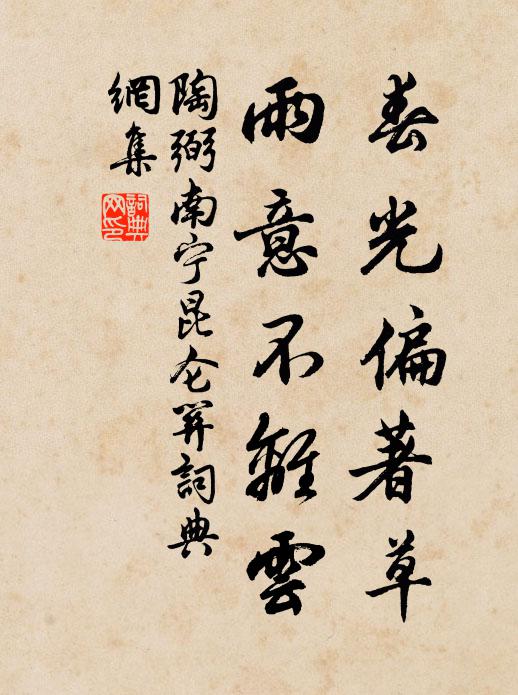 春光偏著草
雨意不離雲
陶弼南宁昆仑関詞典
網集
詞典
网印